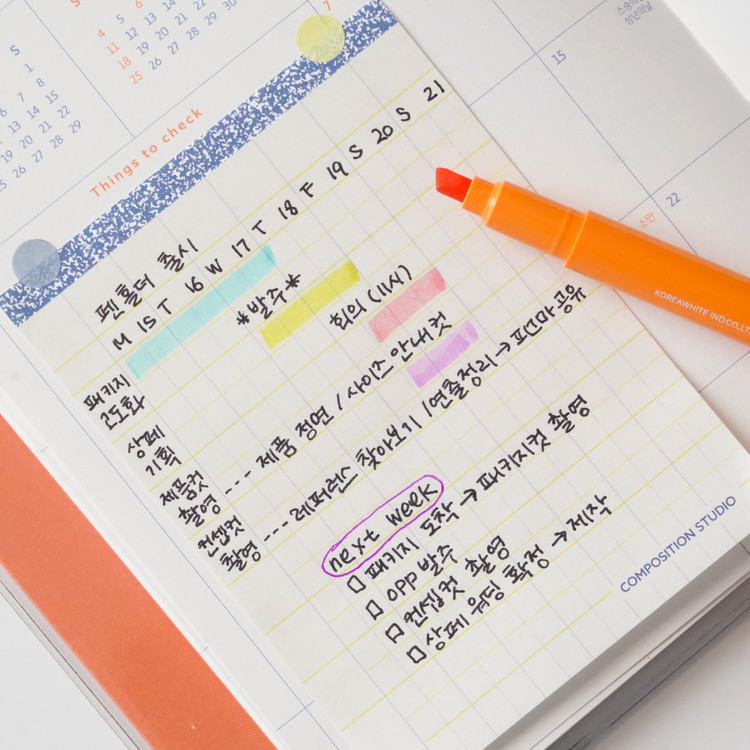 S
1
7 8
13 14 15
19 20 21 22
26 27 28 29
S
4 5 6
11 12 13
18 19 20
25 26 27 28 29 30
7
스승의
성년의날
15
소만
22
Things to check
펜홀더 출시
M 15 T 16 W 17 T 18 F 19 S 20 S 21
패키지
고도화
*발주*
상페
기획
회의 (11시)
제품컷
촬영 --- 제품 정면 / 사이즈 안내컷
컨셉컷
촬영 --- 레퍼런스 찾아보기 / 연출정리 → 피드마 공유
next week
□ 패키지 도착 → 패키지컷 촬영
□ OPP 발주
□ 컨셉컷 촬영
□ 상페 워딩 확정 → 제작
COMPOSITION STUDIO
KOREAWHITE IND.CO.,LTD